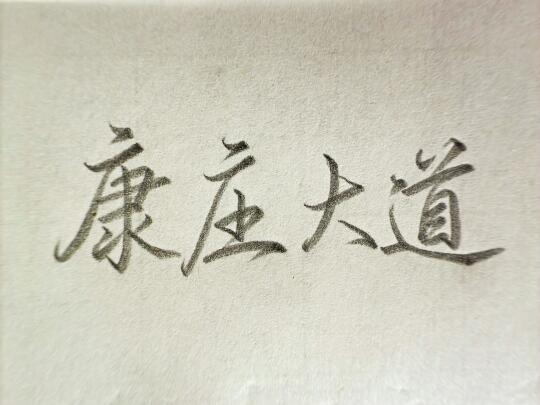 康庄大道